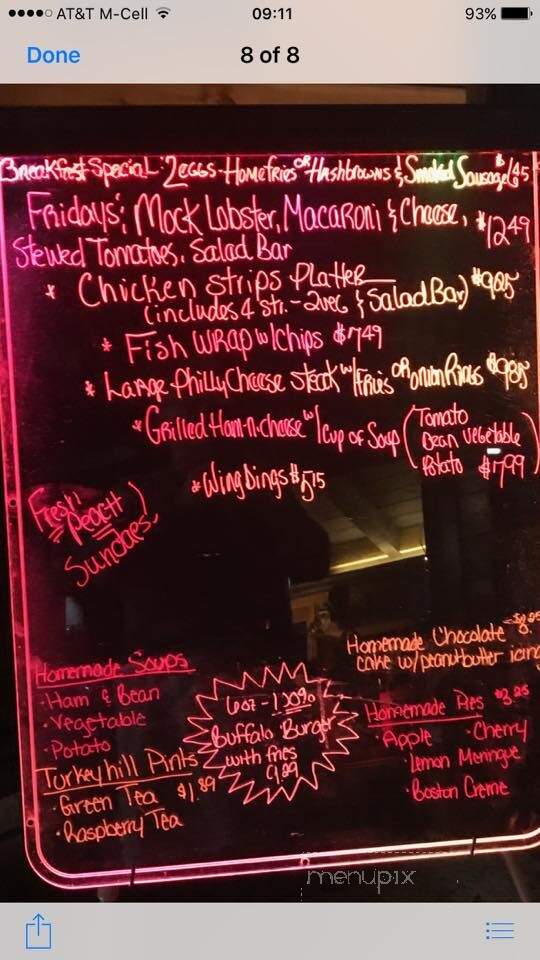 AT&T M-Cell 09:11 93%
Done 8 of 8
Breakfast Special 2 eggs Homefries or Hashbrowns & Smoked Sausage $6.45
Fridays: Mock Lobster, Macaroni & Cheese, $12.49
Stewed Tomatoes, Salad Bar
* Chicken Strips Platter
(includes 4 str. - 2 veg & Salad Bar) $9.85
* Fish Wrap w/ Chips $7.49
* Large Philly Cheese Steak w/ Fries or Onion Rings $9.85
* Grilled Ham-n-cheese w/ 1 cup of Soup (Tomato
Bean vegetable
Potato) $7.99
* Wing Dings $5.15
Fresh
Peach
Sundaes
Homemade Chocolate
cake w/ peanutbutter icing
Homemade Soups
· Ham & Bean
· Vegetable
· Potato
Turkeyhill Pints
· Green Tea $1.89
· Raspberry Tea
6oz - 100%
Buffalo Burger
with fries
9.89
Homemade Pies $3.25
· Apple · Cherry
· Lemon Meringue
· Boston Creme
menupix